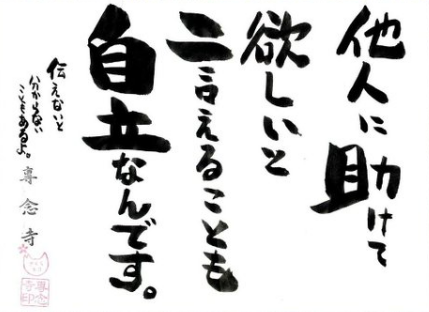 他人に助けて
欲しいと
言えることも
自立なんです。
伝えないと
分からない
こともあるよ。
専念寺